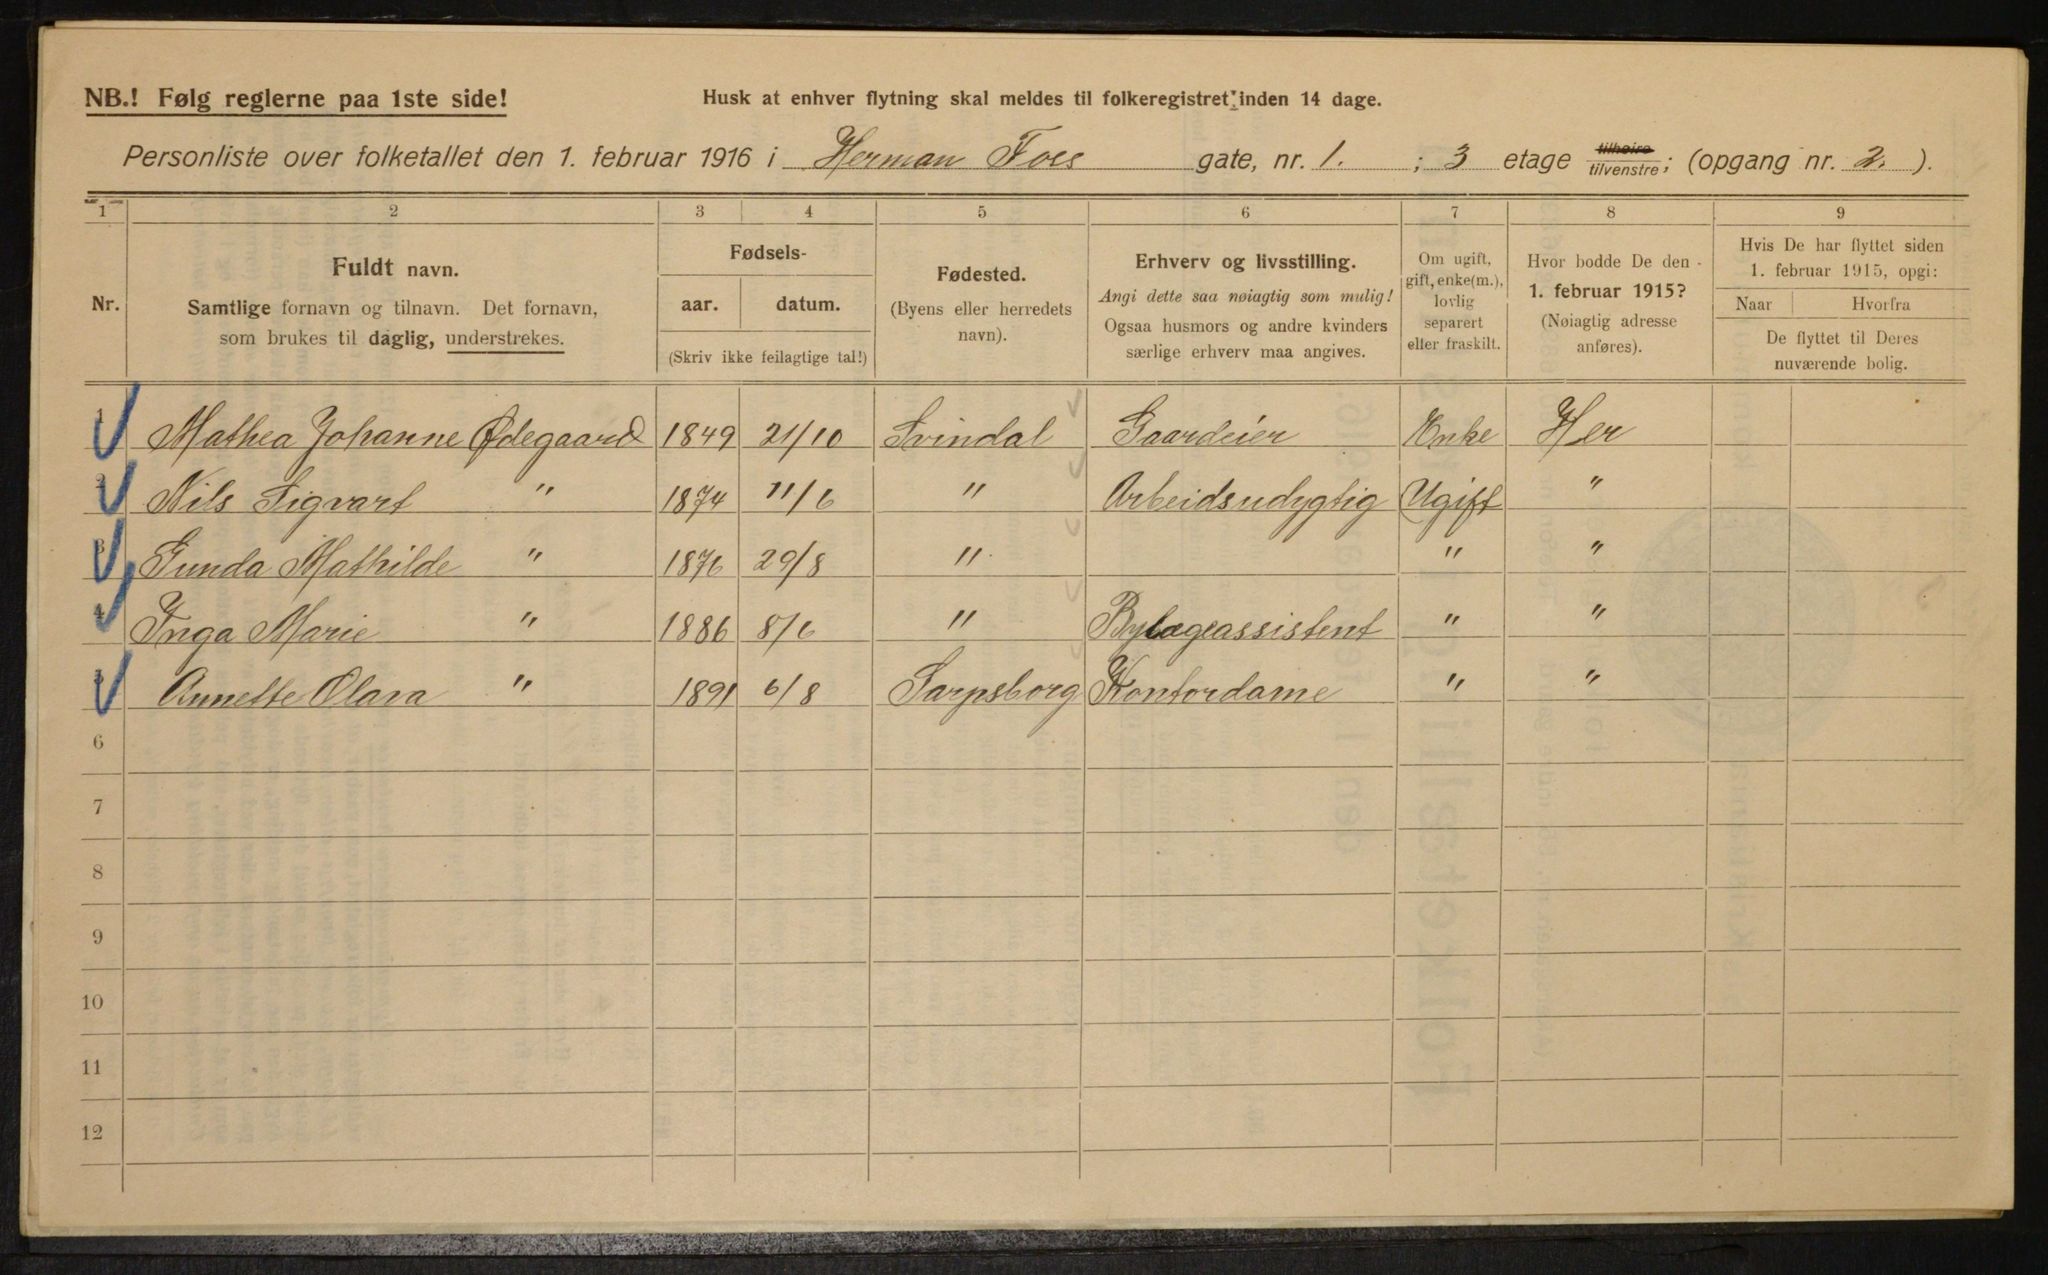 NB.! Følg reglerne paa 1ste side!
Husk at enhver flytning skal meldes til folkeregistret inden 14 dage.
Personliste over folketallet den 1. februar 1916 i Herman Foss gate, nr. 1. ; 3 etage tilhøire tilvenstre; (opgang nr. 2. ).
1 2 3 4 5 6 7 8 9
Nr.
Fuldt navn.
Samtlige fornavn og tilnavn. Det fornavn,
som brukes til daglig, understrekes.
Fødsels-
aar. datum.
(Skriv ikke feilagtige tal!)
Fødested.
(Byens eller herredets
navn).
Erhverv og livsstilling.
Angi dette saa nøiagtig som mulig!
Ogsaa husmors og andre kvinders
særlige erhverv maa angives.
Om ugift,
gift, enke(m.),
lovlig
separert
eller fraskilt.
Hvor bodde De den
1. februar 1915?
(Nøiagtig adresse
anføres).
Hvis De har flyttet siden
1. februar 1915, opgi:
Naar Hvorfra
De flyttet til Deres
nuværende bolig.
1 Mathea Johanne Ødegaard 1849 21/10 Svindal Gaardeier Enke Her
2 Nils Sigvart " 1874 11/6 " Arbeidsudygtig Ugift "
3 Gunda Mathilde " 1876 29/8 " " "
4 Inga Marie " 1886 8/6 " " "
5 Annette Olava " 1891 6/8 Sarpsborg Kontordame " "
6
7
8
9
10
11
12